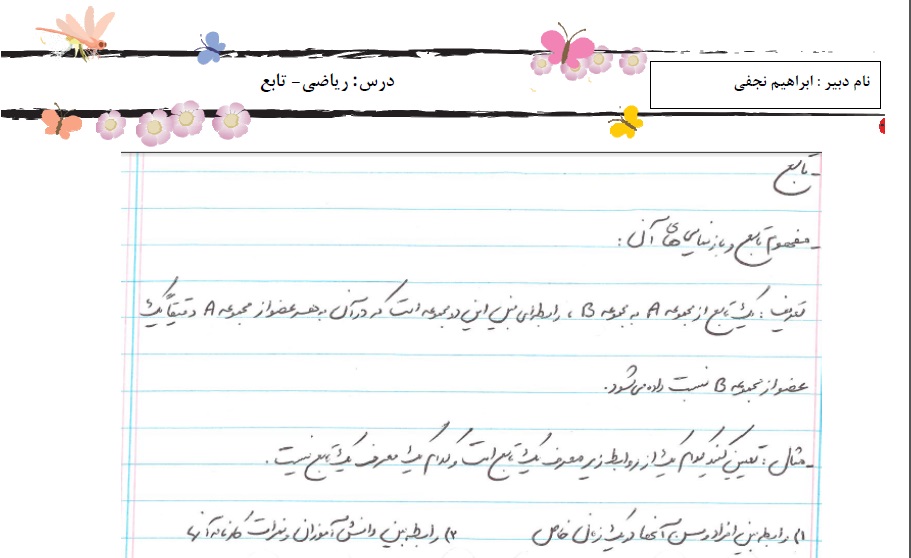 نام دبیر : ابراهیم نجفی
درس: ریاضی - تابع
- تابع
- مفهوم تابع و بازنمایی های آن :
تعریف : یک تابع از مجموعه A به مجموعه B ، رابطه‌ای بین این دو مجموعه است که در آن به هر عضو از مجموعه A دقیقاً یک
عضو از مجموعه B نسبت داده می‌شود.
- مثال : تعیین کنید کدام یک از روابط زیر معرف یک تابع است و کدام یک معرف یک تابع نیست .
۱) رابطه بین افراد و سن آنها در یک زمان خاص ۲) رابطه بین دانش آموزان و نمرات کارنامه آنها